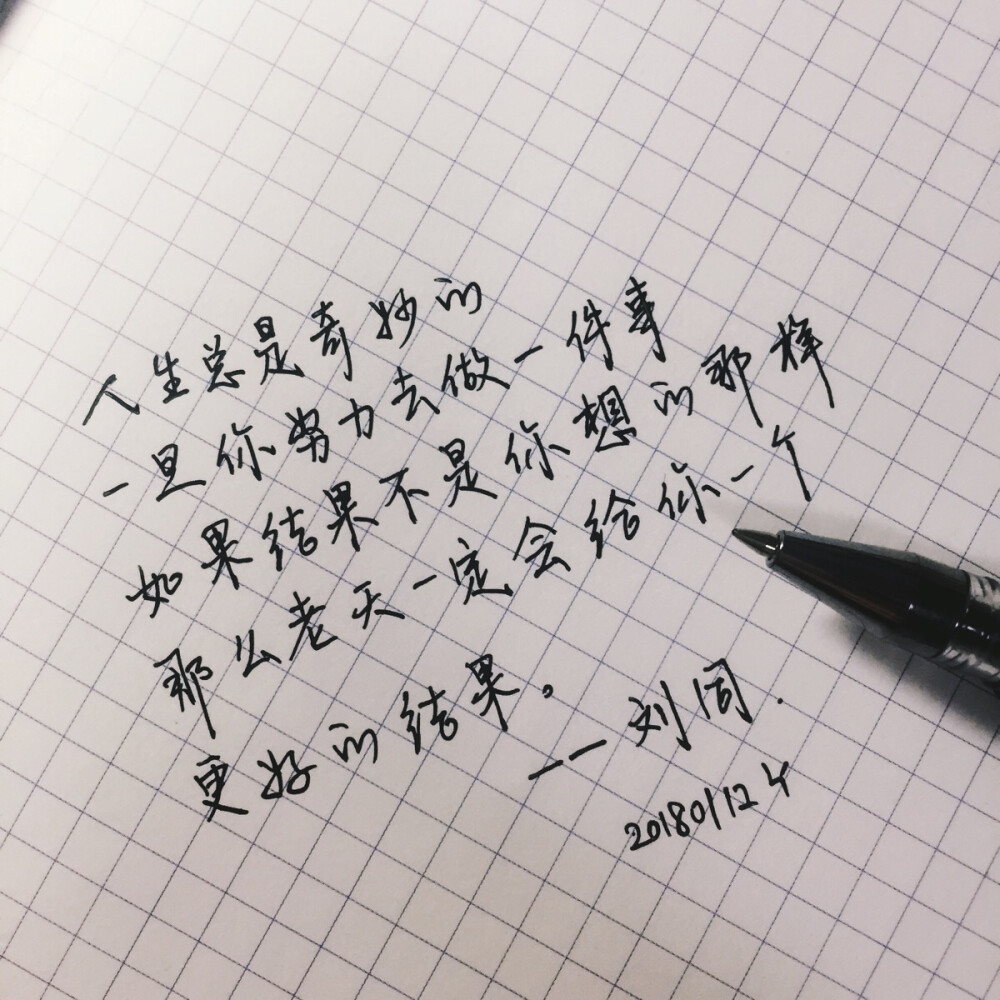 人生总是奇妙的
一旦你努力去做一件事
如果结果不是你想的那样
那么老天一定会给你一个
更好的结果。
——刘同.
20180112